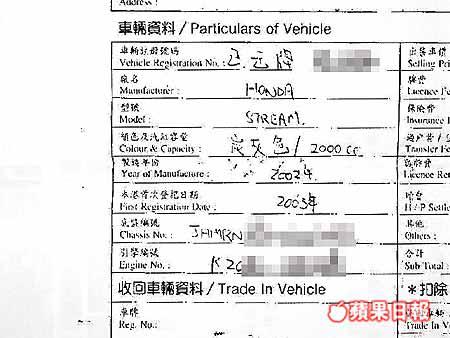 Address :
車輛資料/Particulars of Vehicle
車輛註冊號碼
Vehicle Registration No. :
出售車價
Selling Pri
廠名
Manufacturer : HONDA
牌費
Licence Fe
型號
Model : STREAM
保險費
Insurance
顏色及汽缸容量
Colour & Capacity : 炭灰色 / 2000 cc
Transfer Fe
製造年份
Year of Manufacture : 2002年
Licence Ret
本港首次登記日期
First Registration Date : 2003年
H/P Settle
底盤編號
Chassis No. : JHMRN
其他
Others :
引擎編號
Engine No. : K20
合計
Sub Total :
收回車輛資料/Trade In Vehicle
*扣除
車牌
Reg. No.:
蘋果日報